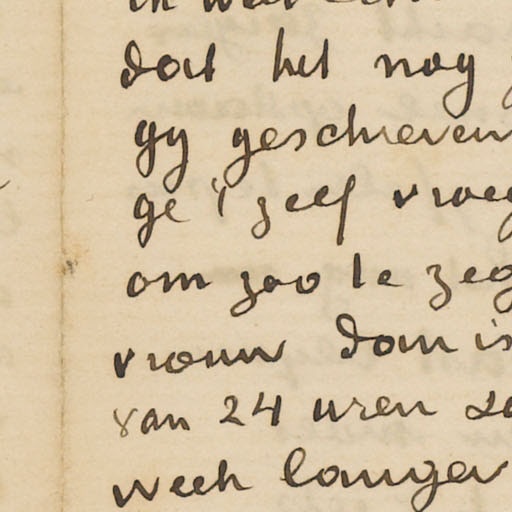 dat het nog
gy geschreven
ge 't zelf vroeg
om zoo te zeg
vrouw dan is
van 24 uren
week langer